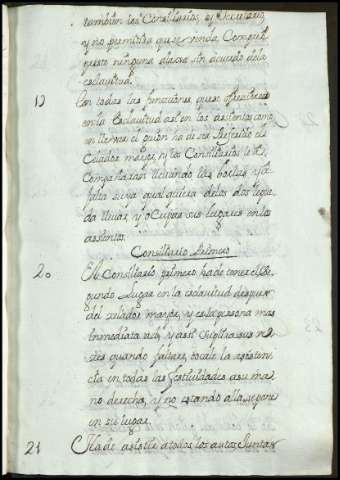 tambien los Consiliarios, y Secretario
y no permitira que se rinda Con que
puesto ninguna alaxa sin acuerdo de la
esclavitud.
19 En todas las funciones que se ofrecieren
en la Esclavitud asi en los asientos como
en llevar el guion ha de ser Preferido el
Celador mayor, y los Consiliarios le
Compañaran llevando las borlas, y si
falta sen qualquiera de los dos le que
da llevar, y oCupar sus lugares en los
asientos.
Consiliario Primero
20 El Consiliario primero ha de tener el Se
gundo Lugar en la esclavitud despues
del zelador mayor, y es la persona mas
Inmediata a el, y asi Suplira sus ve
ses quando faltare, tocale la asisten
cia en todas las festividades a su ma
no derecha, y no estando alla se pone
en su lugar.
21 Ha de asistir a todos los autos Juntas